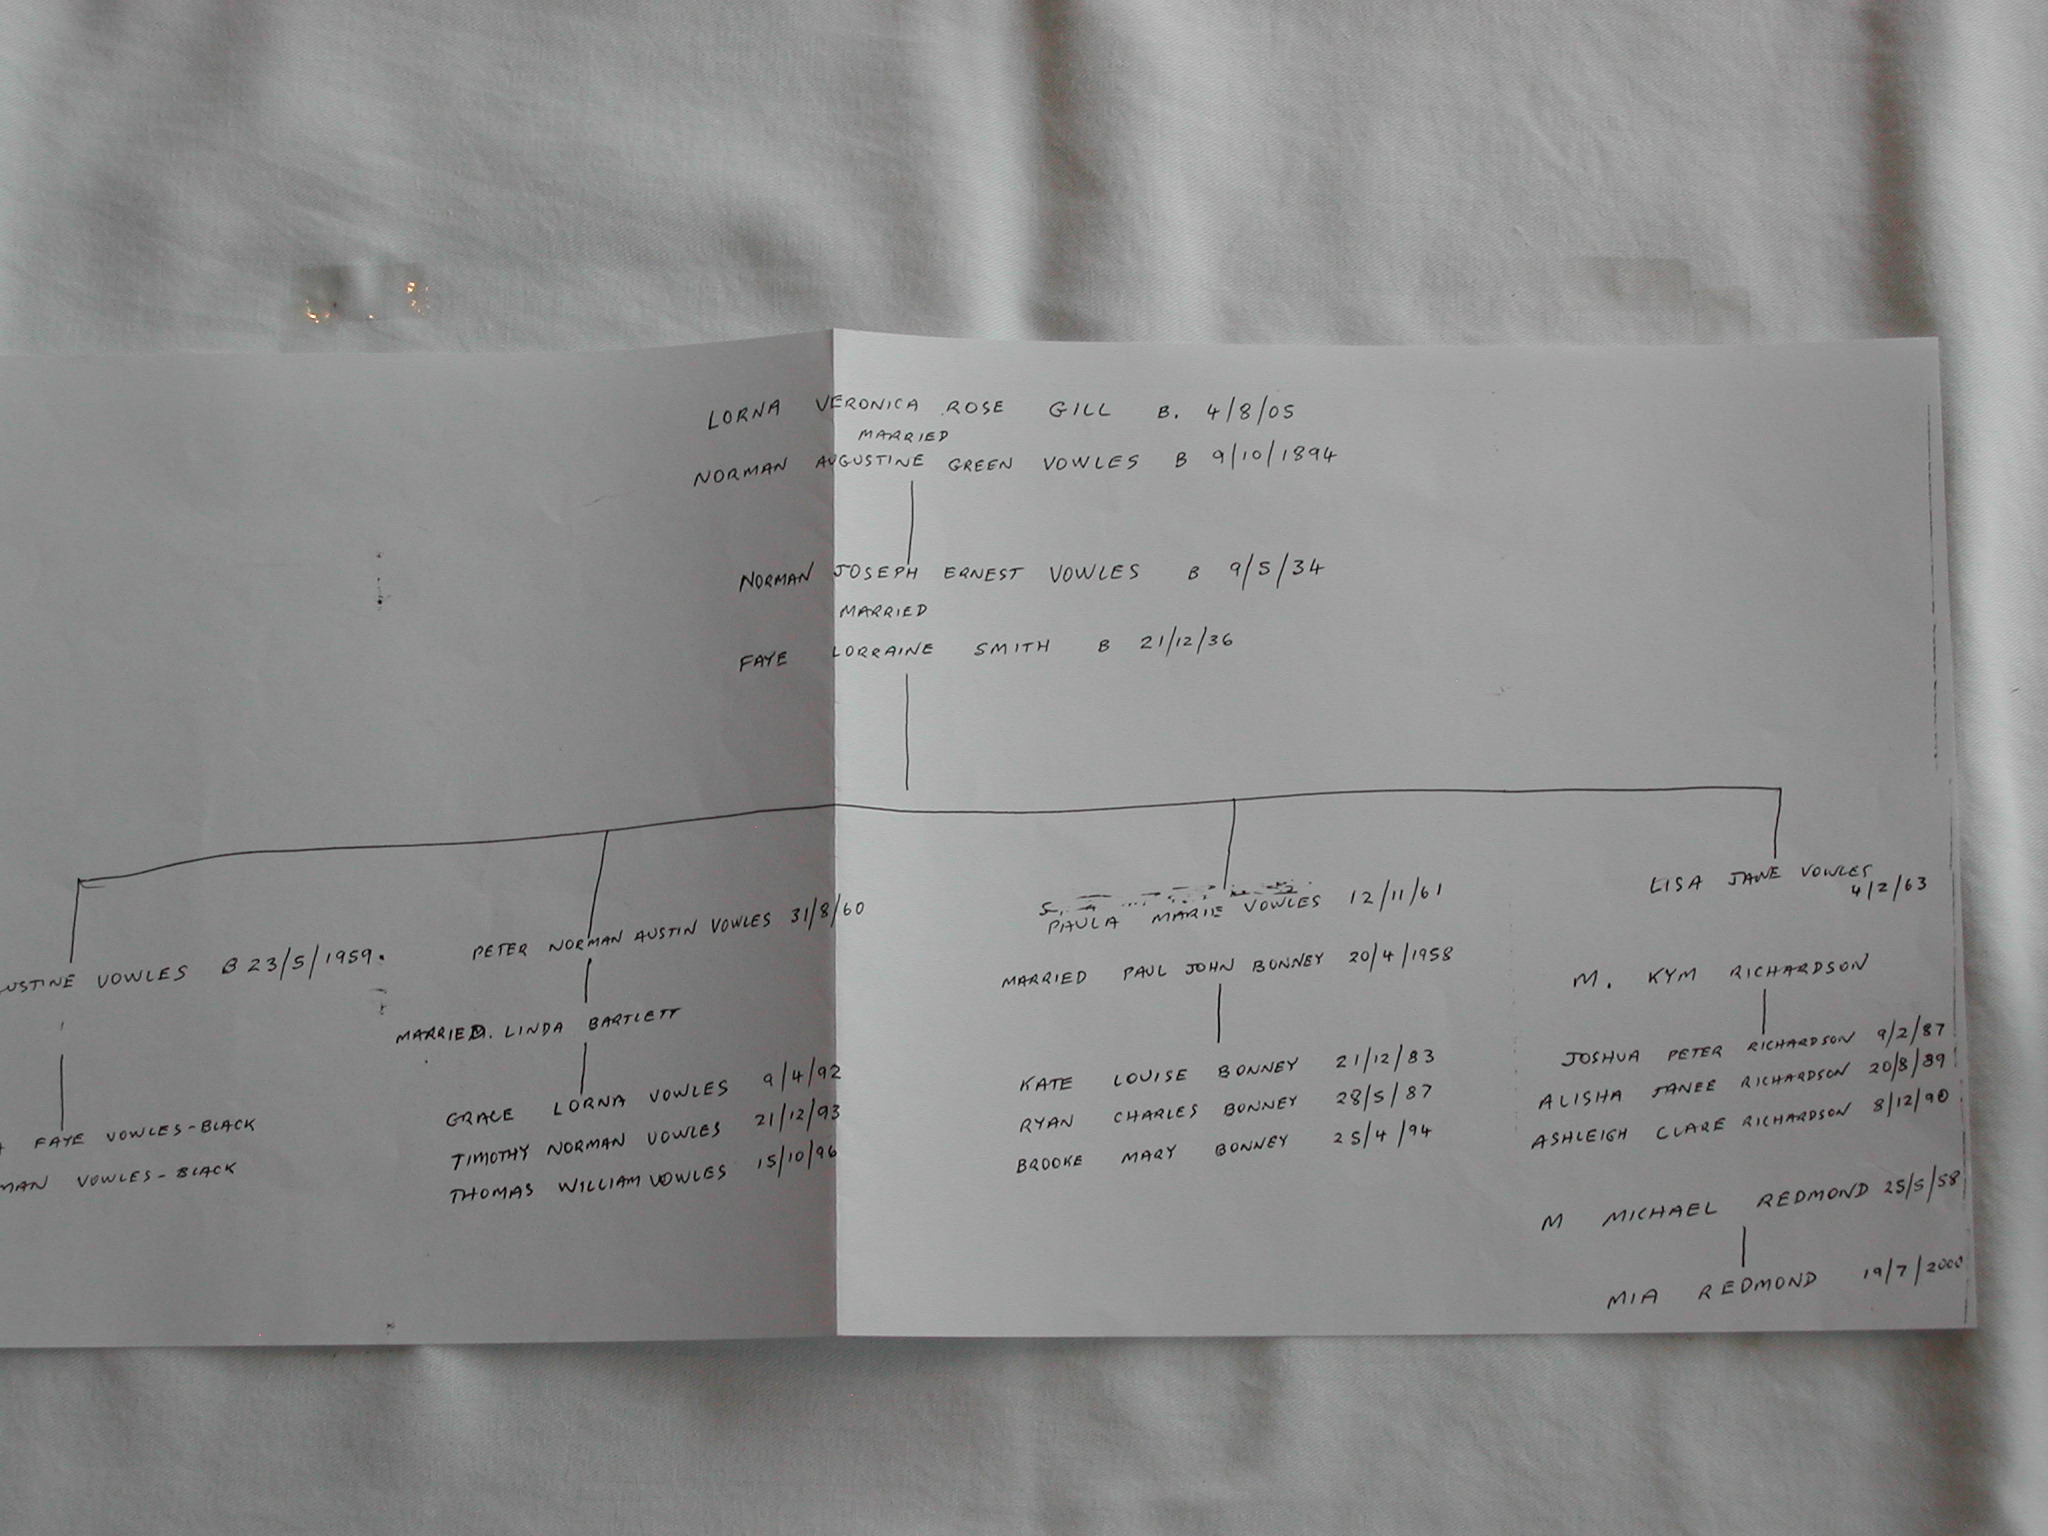 LORNA VERONICA ROSE GILL B. 4/8/05
MARRIED
NORMAN AUGUSTINE GREEN VOWLES B 9/10/1894
NORMAN JOSEPH ERNEST VOWLES B 9/5/34
MARRIED
FAYE LORRAINE SMITH B 21/12/36
USTINE VOWLES B 23/5/1959.
FAYE VOWLES-BLACK
MAN VOWLES-BLACK
PETER NORMAN AUSTIN VOWLES 31/8/60
MARRIED. LINDA BARTLETT
GRACE LORNA VOWLES 9/4/92
TIMOTHY NORMAN VOWLES 21/12/93
THOMAS WILLIAM VOWLES 15/10/96
PAULA MARIE VOWLES 12/11/61
MARRIED PAUL JOHN BONNEY 20/4/1958
KATE LOUISE BONNEY 21/12/83
RYAN CHARLES BONNEY 28/5/87
BROOKE MARY BONNEY 25/4/94
LISA JANE VOWLES
4/2/63
M. KYM RICHARDSON
JOSHUA PETER RICHARDSON 9/2/87
ALISHA JANEE RICHARDSON 20/8/89
ASHLEIGH CLARE RICHARDSON 8/12/90
M MICHAEL REDMOND 25/5/58
MIA REDMOND 19/7/2000